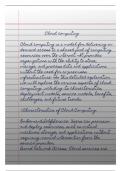 Cloud computing
Cloud computing is a model for delivering on-
demand access to a shared pool of computing
resources over the internet. It provides
organizations with the ability to store,
manage, and process data and applications
without the need for on-premises
infrastructure. In this detailed explanation,
we will explore the various aspects of cloud
computing, including its characteristics,
deployment models, service models, benefits,
challenges, and future trends.
Characteristics of Cloud Computing:
On-demand self-service: Users can provision
and deploy resources, such as virtual
machines, storage, and applications, without
requiring human interaction with the
service provider.
Broad network access: Cloud services are